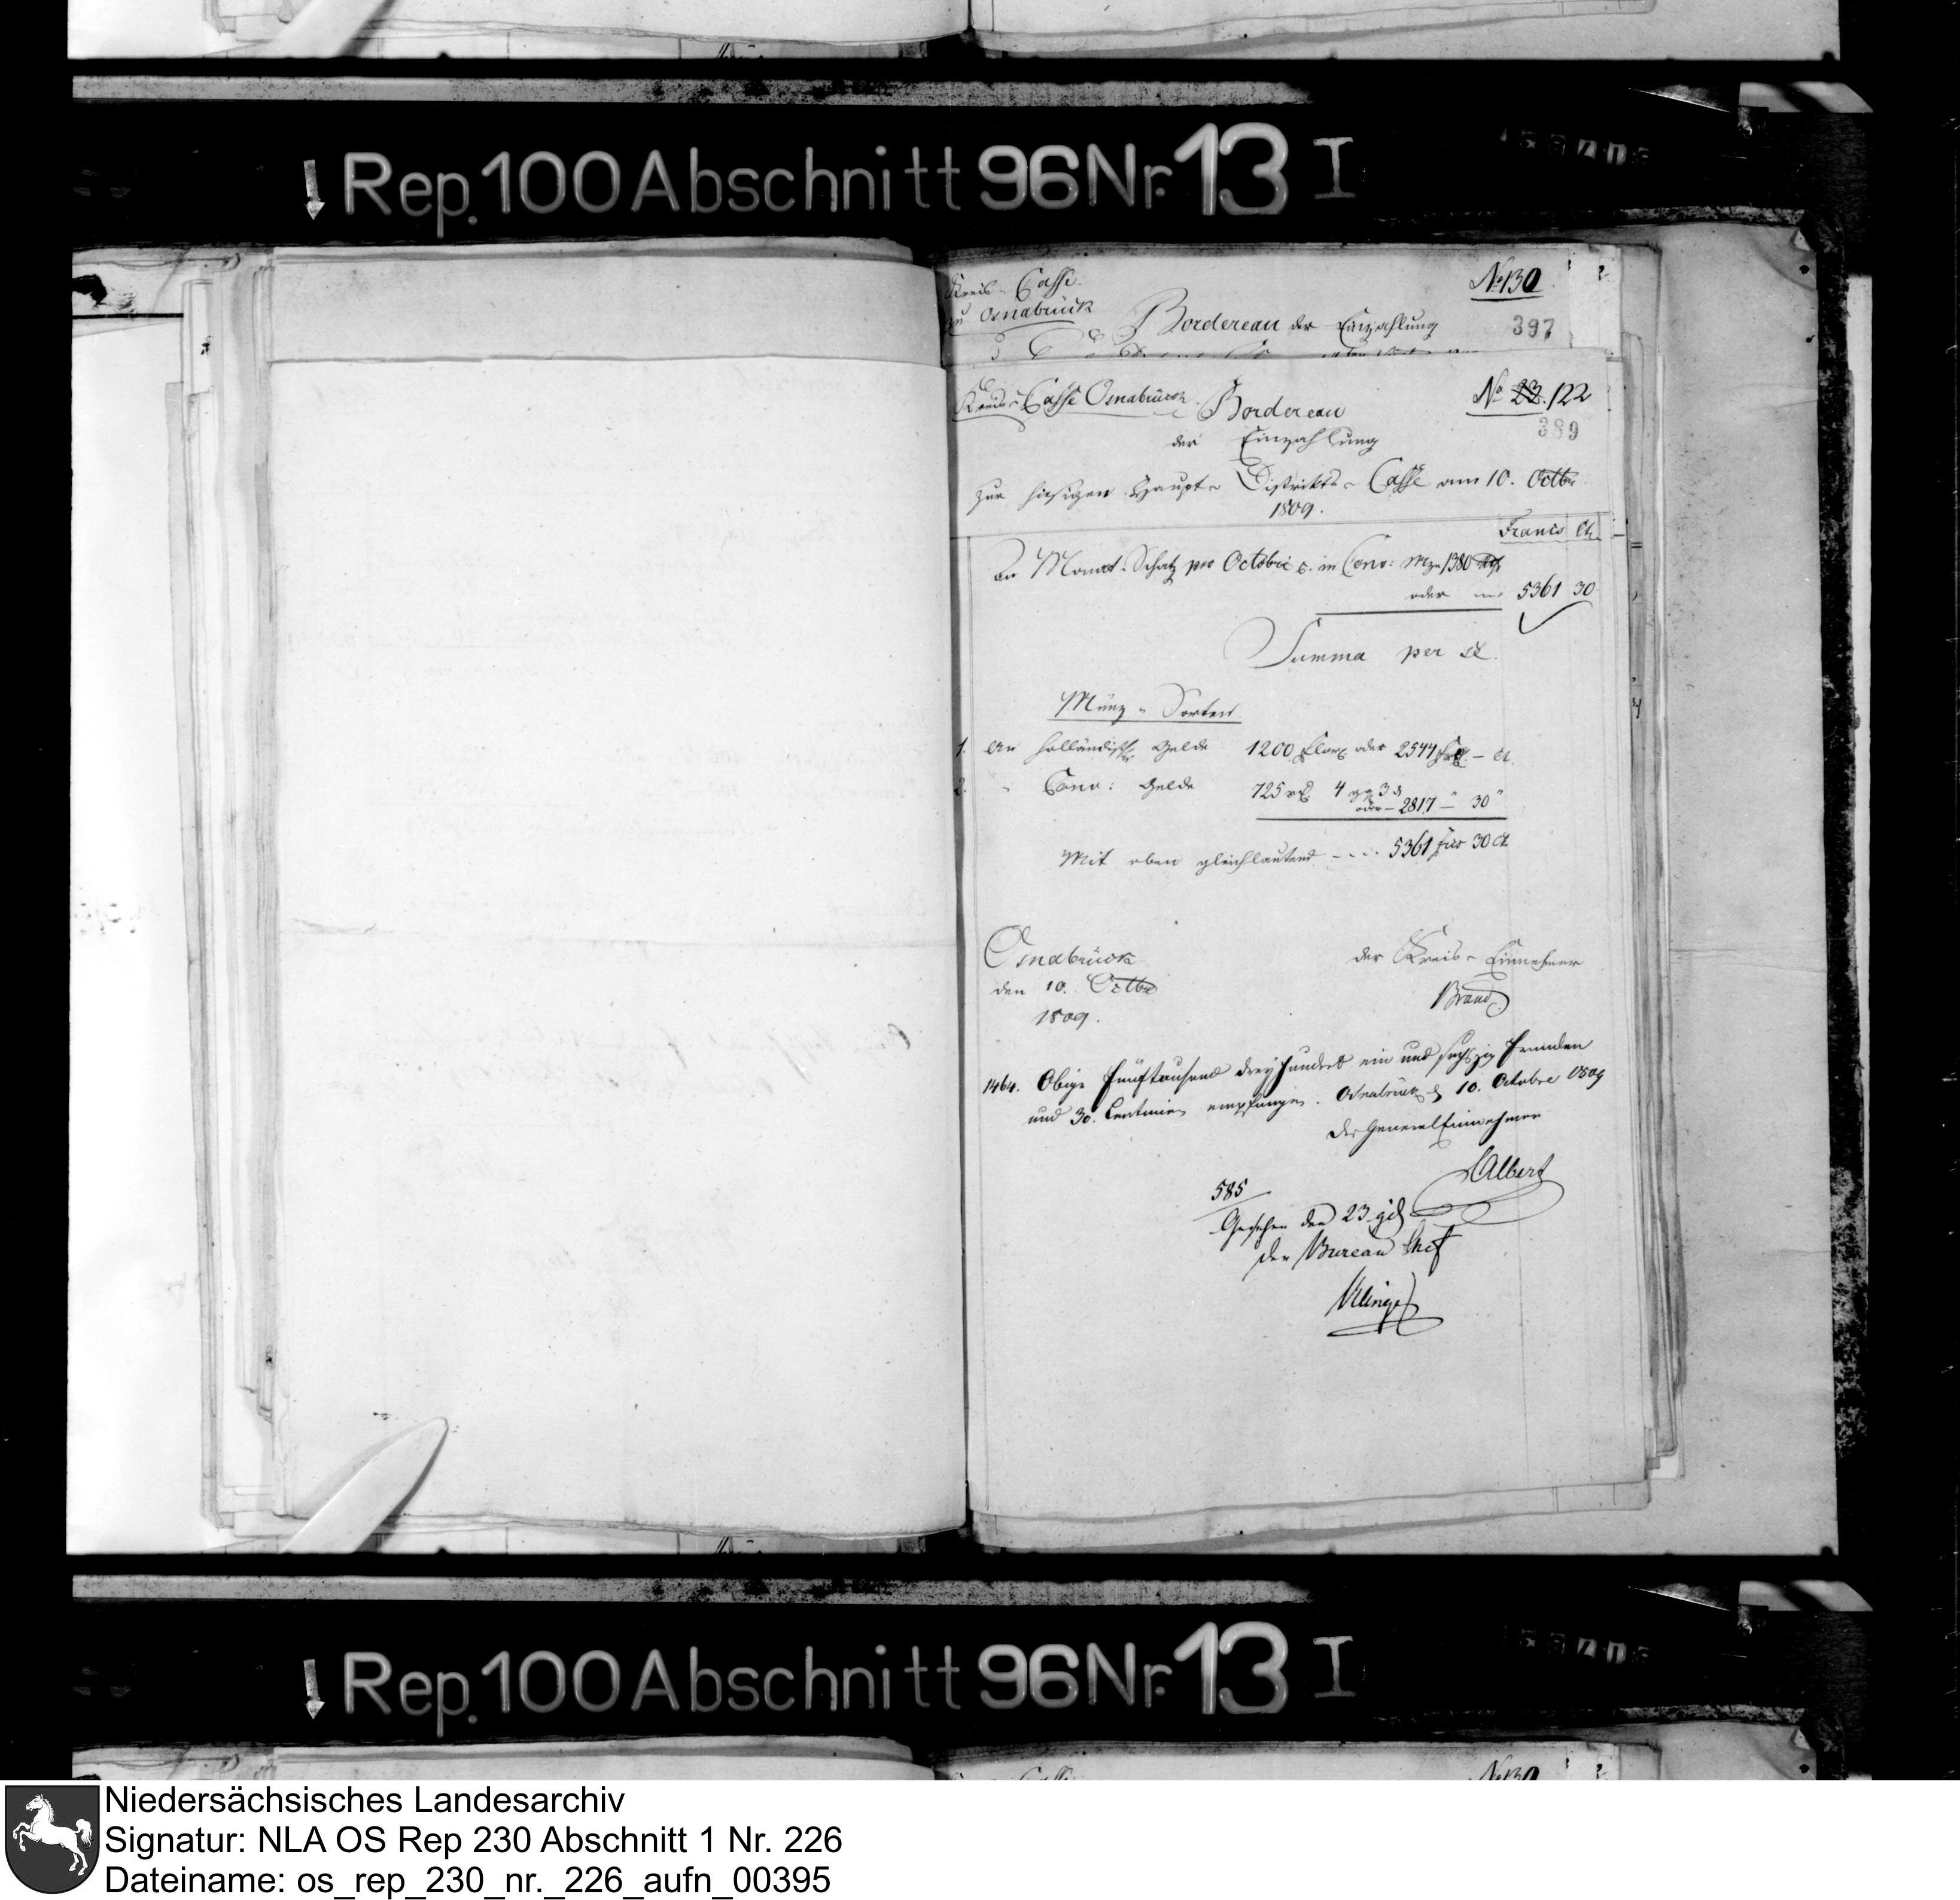 Rep. 100 Abschnitt 96 Nr. 13 I
Kreis-Casse
zu Osnabrück
No 130
Bordereau der Einzahlung
397
Kreis-Casse Osnabrück
Bordereau
No 23. 122
389
der Einzahlung
zur hiesigen Haupt-Distrikts-Casse am 10. Octbr
1809.
Francs Ct.
An Monat-Schatz pro Octobre c. in Conv: Mze 1380
oder 5361 30
Summa per se.
Münz-Sorten
1. An holländisch Gelde 1200 oder 2544 – Ct.
2. " Conv: Gelde 725 4 gg 3 d
oder – 2817 " 30 "
Mit oben gleichlautend ---- 5361 frs 30 Ct
Osnabrück
den 10. Octbr
1809.
der Kreis-Einnehmer
Brand
1464. Obige fünftausend dreyhundert ein und sechszig Franken
und 30. Centimen empfangen. Osnabrück d 10. Octobre 1809
Der General Einnehmer
Albert
585
Gesehen den 23
der Bureau Chef
Rep. 100 Abschnitt 96 Nr. 13 I
No 130
Niedersächsisches Landesarchiv
Signatur: NLA OS Rep 230 Abschnitt 1 Nr. 226
Dateiname: os_rep_230_nr._226_aufn_00395